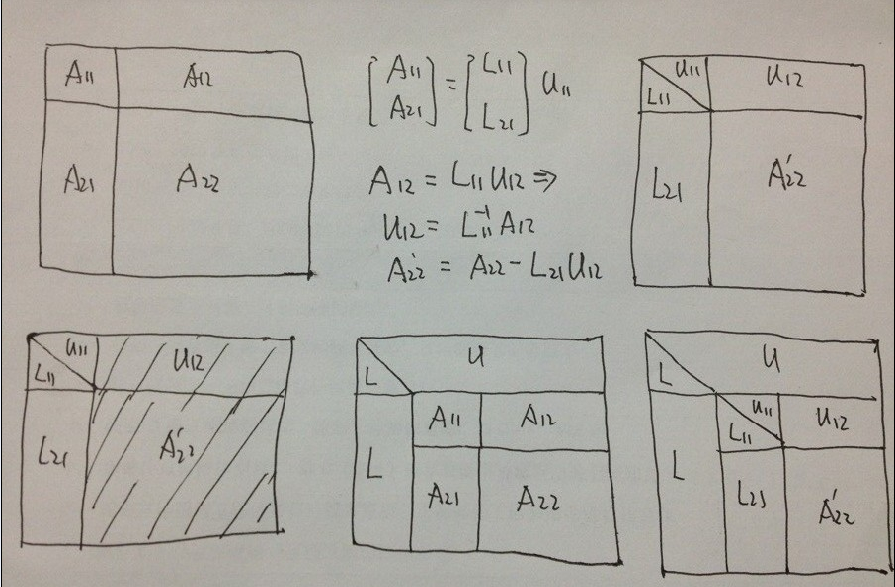 A11 A12
A21 A22
[A11 A21] = [L11 L21] U11
A12 = L11 U12 ⇒
U12 = L11^-1 A12
A22' = A22 - L21 U12
U11 U12
L11
L21 A22'
U11 U12
L11
L21 A22'
U
L
A11 A12
L
A21 A22
U
L
U11 U12
L11
L
L21 A22'